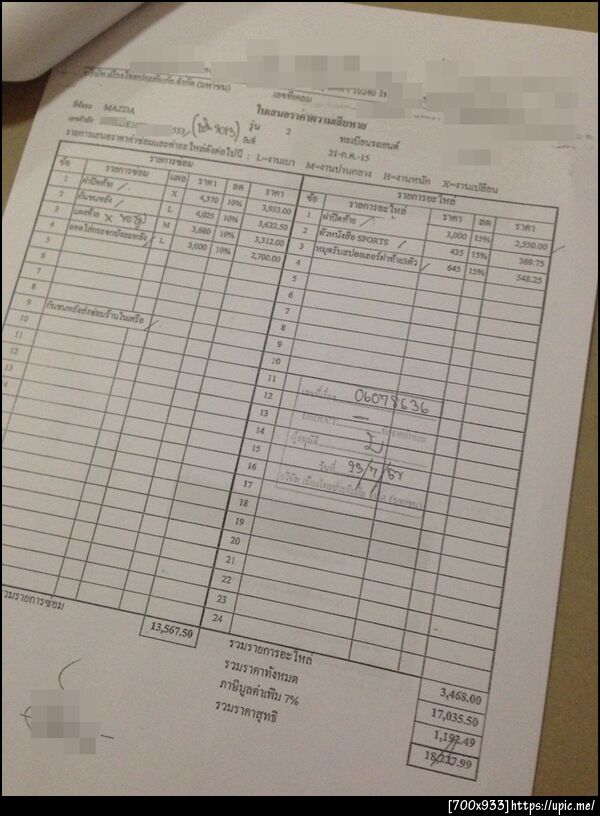 บริษัท เมืองไทยประกันภัย จำกัด (มหาชน)
10240
เลขที่เคลม
ใบเสนอราคาค่าความเสียหาย
ยี่ห้อรถ MAZDA รุ่น 2 ทะเบียนรถยนต์
เลขตัวถัง 553/ วันที่ 21-ก.ค.-15
รายการเสนอราคาค่าซ่อมและค่าอะไหล่ดังต่อไปนี้ : L=งานเบา M=งานปานกลาง H=งานหนัก X=งานเปลี่ยน
รายการซ่อม
ข้อ รายการซ่อม แผล ราคา ลด ราคา
1 ฝาปิดท้าย X 4,370 10% 3,933.00
2 กันชนหลัง L 4,025 10% 3,622.50
3 แผงท้าย M 3,680 10% 3,312.00
4 L 3,000 10% 2,700.00
5
6
7
8
9 กันชนหลังส่งซ่อมร้านในเครือ
10
11
12
13
14
รวมรายการซ่อม 13,567.50
รายการอะไหล่
ข้อ รายการอะไหล่ ราคา ลด ราคา
1 ฝาปิดท้าย 3,000 15% 2,550.00
2 ตัวหนังสือ SPORTS 435 15% 369.75
3 หมุดรับสปอยเลอร์ฝาท้าย3ตัว 645 15% 548.25
4
5
6
7
8
9
10
11
12
13
14
15
16
17
18
19
20
21
22
23
24
เลขที่เรื่อง 06078636
DEDUCT
ผู้อนุมัติ
วันที่
บริษัท เมืองไทยประกันภัย จำกัด (มหาชน)
รวมรายการอะไหล่ 3,468.00
รวมราคาทั้งหมด 17,035.50
ภาษีมูลค่าเพิ่ม 7% 1,192.49
รวมราคาสุทธิ 18,227.99
[700x933]https://upic.me/